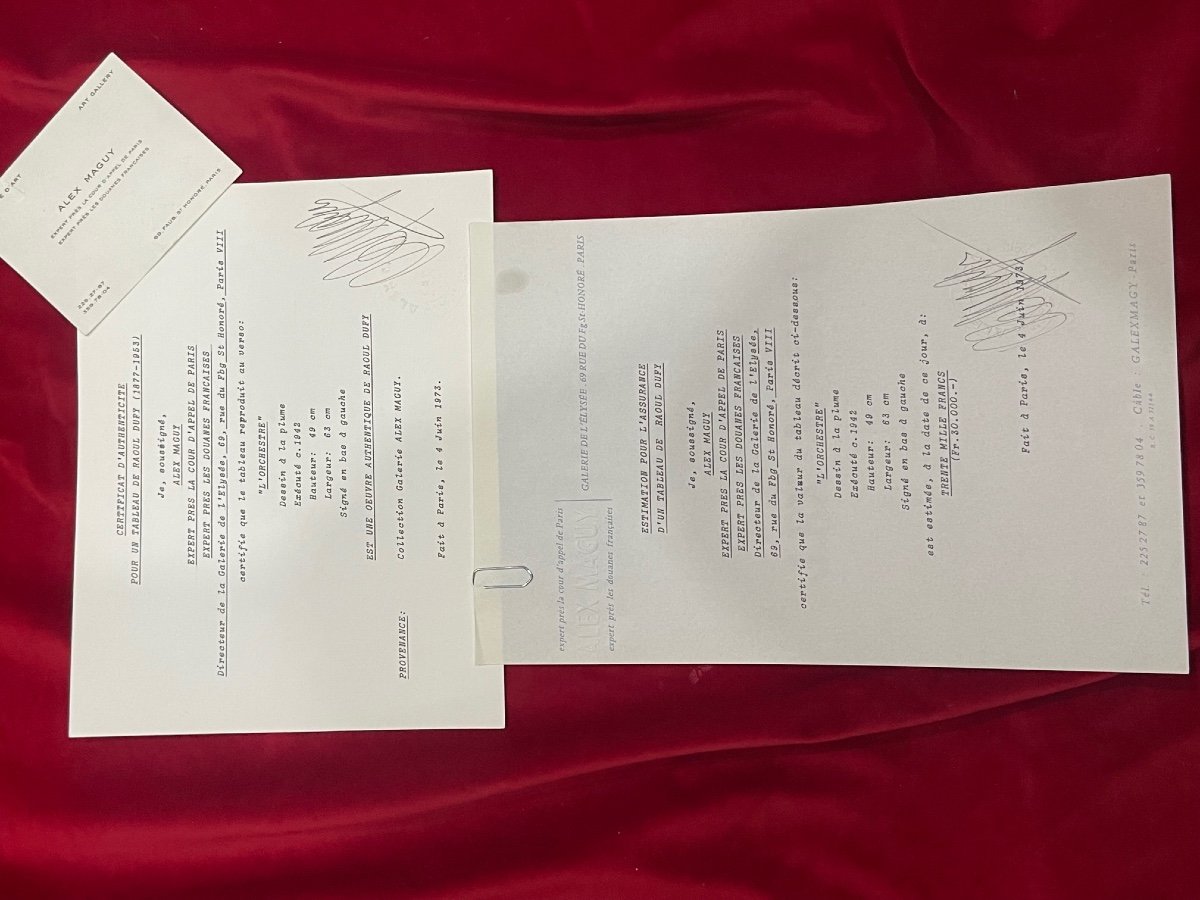 ART GALLERY
E D'ART
ALEX MAGUY
EXPERT PRÈS LA COUR D'APPEL DE PARIS
EXPERT PRÈS LES DOUANES FRANÇAISES
225.27.87
359.78.04
69, FAUB. ST HONORÉ, PARIS
CERTIFICAT D'AUTHENTICITE
POUR UN TABLEAU DE RAOUL DUFY (1877-1953)
Je, soussigné,
ALEX MAGUY
EXPERT PRES LA COUR D'APPEL DE PARIS
EXPERT PRES LES DOUANES FRANCAISES
Directeur de la Galerie de l'Elysée, 69, rue du Fbg St Honoré, Paris VIII
certifie que le tableau reproduit au verso:
"L'ORCHESTRE"
Dessin à la plume
Exécuté c.1942
Hauteur: 49 cm
Largeur: 63 cm
Signé en bas à gauche
EST UNE OEUVRE AUTHENTIQUE DE RAOUL DUFY
PROVENANCE: Collection Galerie ALEX MAGUY.
Fait à Paris, le 4 Juin 1973.
expert près la cour d'appel de Paris
ALEX MAGUY
expert près les douanes françaises
GALERIE DE L'ÉLYSÉE . 69 RUE DU Fg St HONORÉ . PARIS
ESTIMATION POUR L'ASSURANCE
D'UN TABLEAU DE RAOUL DUFY
Je, soussigné,
ALEX MAGUY
EXPERT PRES LA COUR D'APPEL DE PARIS
EXPERT PRES LES DOUANES FRANCAISES
Directeur de la Galerie de l'Elysée,
69, rue du Fbg St Honoré, Paris VIII
certifie que la valeur du tableau décrit ci-dessous:
"L'ORCHESTRE"
Dessin à la plume
Exécuté c.1942
Hauteur: 49 cm
Largeur: 63 cm
Signé en bas à gauche
est estimée, à la date de ce jour, à:
TRENTE MILLE FRANCS
(Fr.30.000.-)
Fait à Paris, le 4 Juin 1973)
Tél : 225 27 87 et 359 78 04 Câble : GALEXMAGY Paris